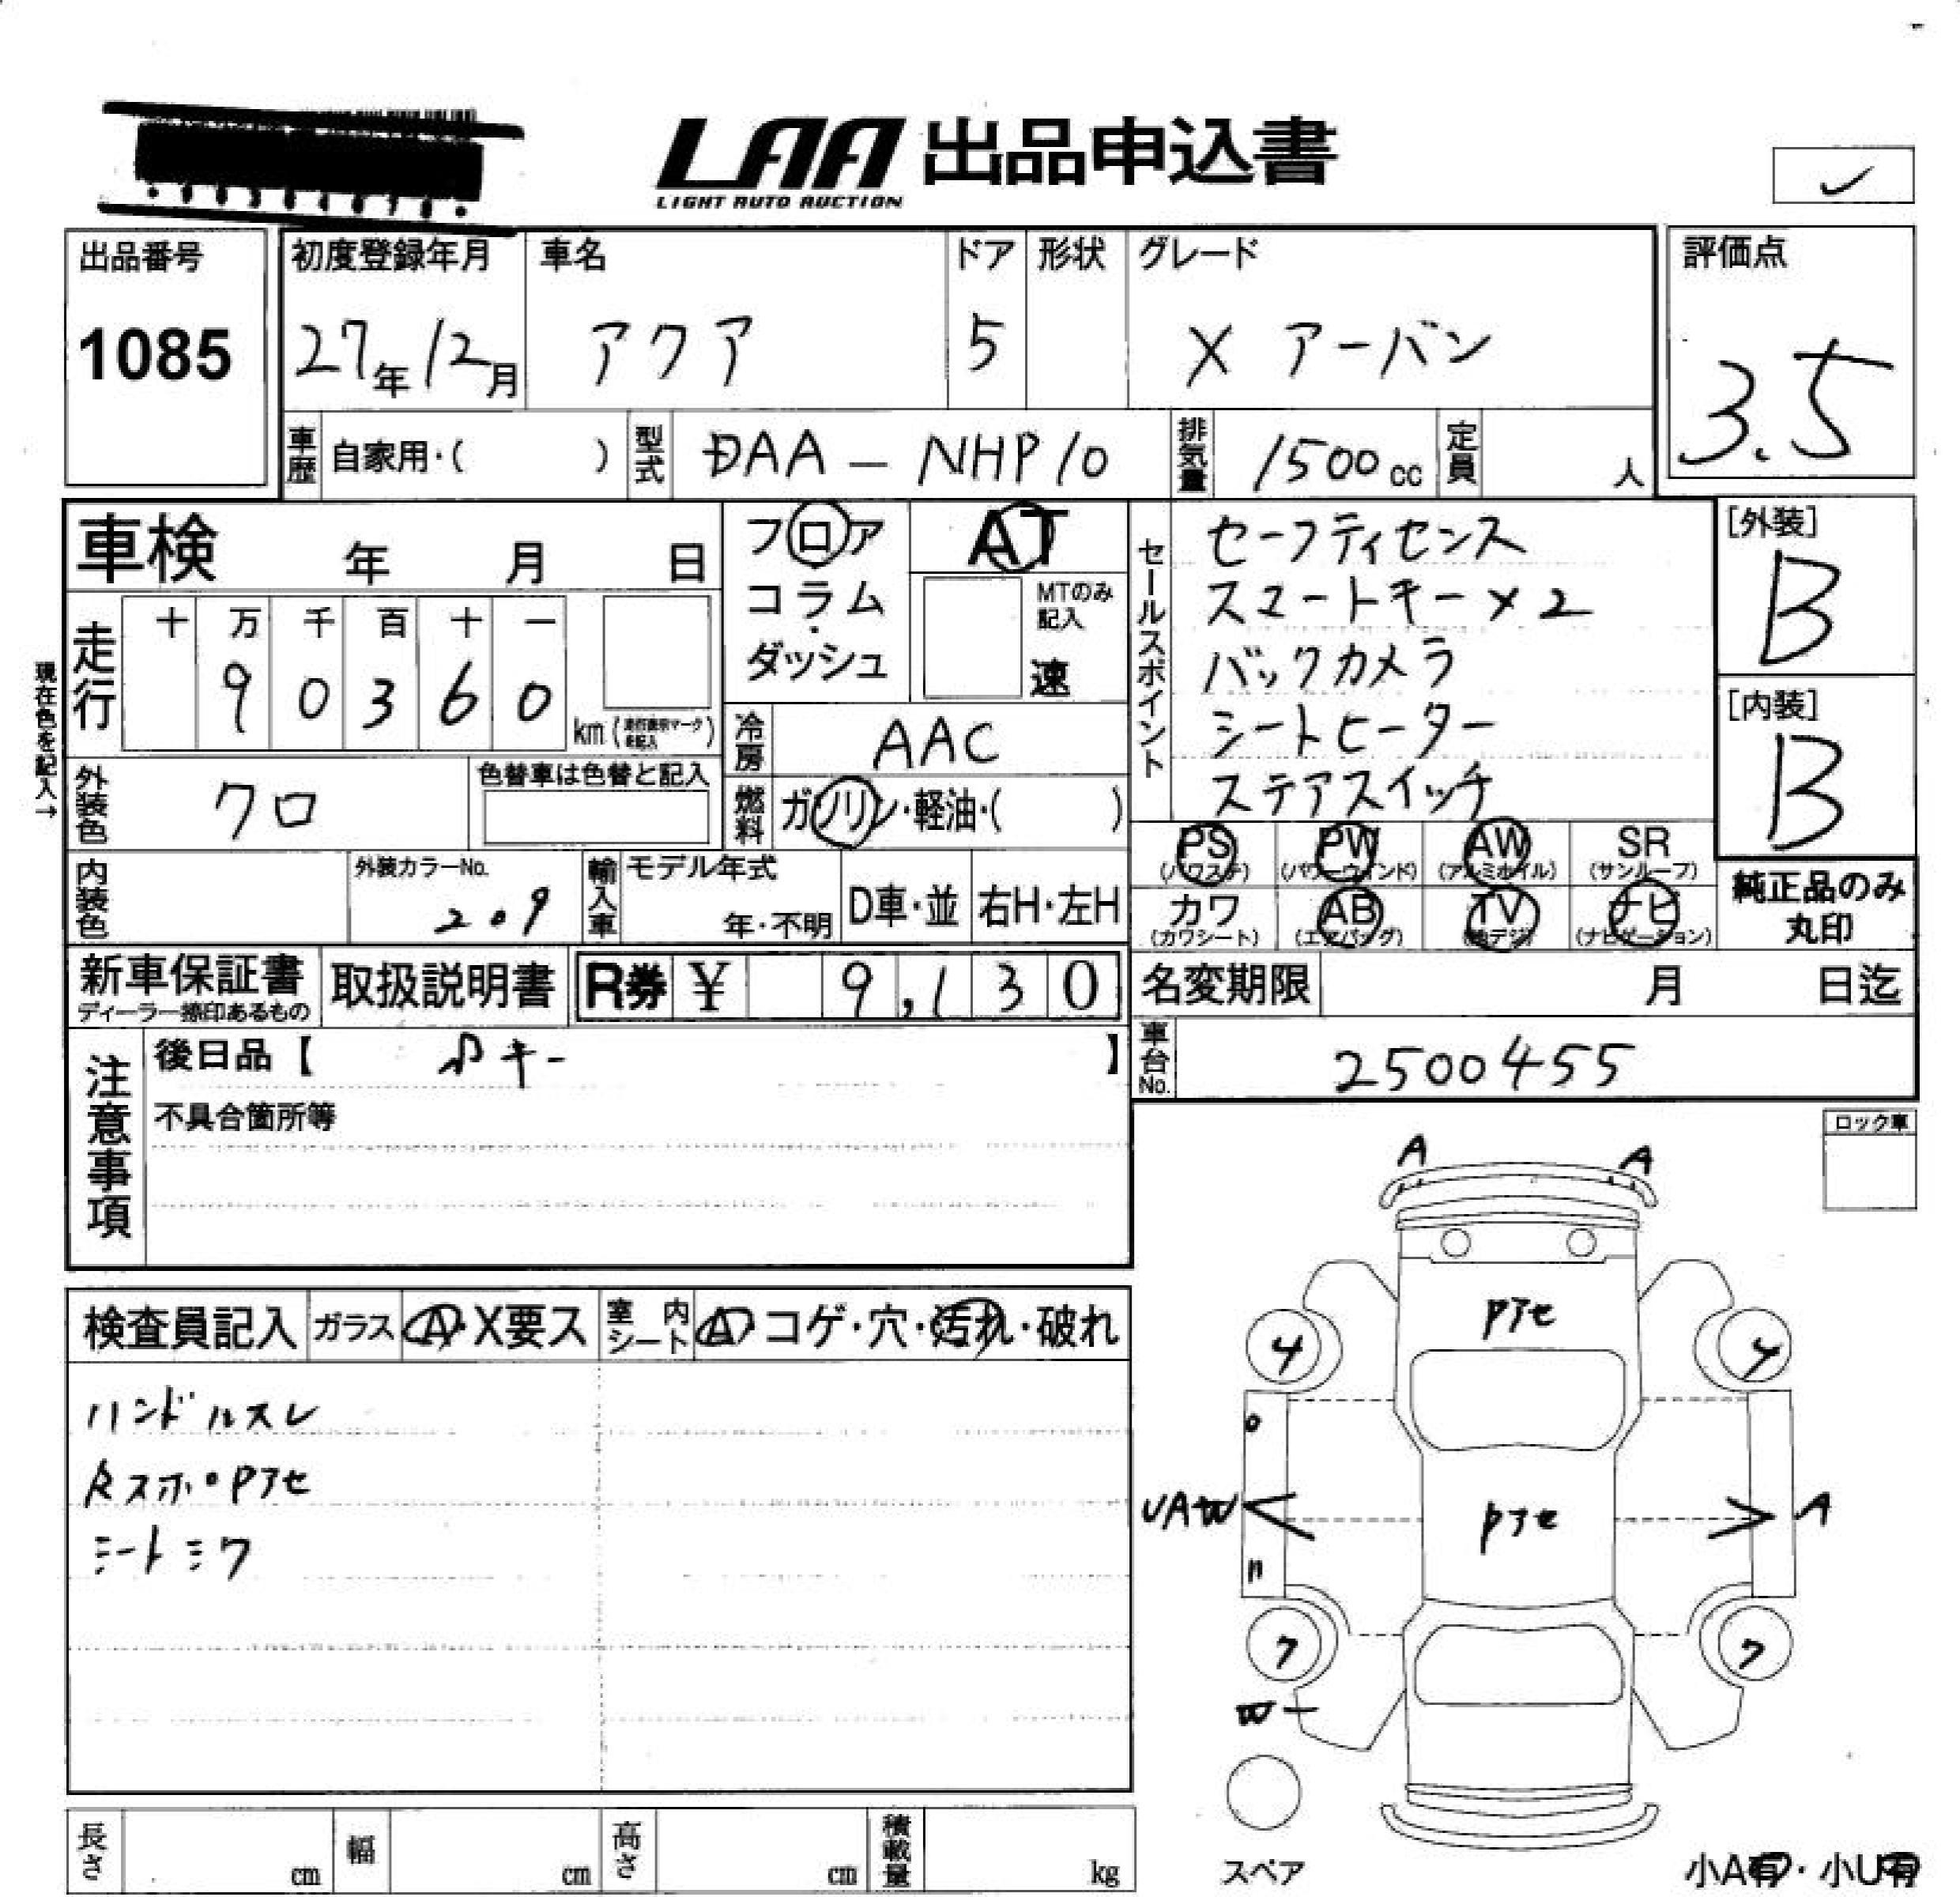 LAA 出品申込書
LIGHT AUTO AUCTION
出品番号 初度登録年月 車名 ドア 形状 グレード 評価点
1085 27年12月 アクア 5 X アーバン 3.5
車歴 自家用・( ) 型式 DAA - NHP10 排気量 1500cc 定員 人
車検 年 月 日 フロア AT セールスポイント セーフティセンス [外装]
コラム MTのみ記入 スマートキー×2 B
ダッシュ 速 バックカメラ
走行 十 万 千 百 十 一
9 0 3 6 0 km
現在色を記入→
冷房 AAC シートヒーター [内装]
外装色 クロ 色替車は色替と記入 燃料 ガソリン・軽油・( ) ステアスイッチ B
PS (パワステ) PW (パワーウインド) AW (アルミホイル) SR (サンルーフ)
内装色 外装カラーNo. 209 輸入車 モデル年式 年・不明 D車・並 右H・左H
カワ (カワシート) AB (エアバッグ) TV (地デジ) ナビ (ナビゲーション) 純正品のみ丸印
新車保証書 取扱説明書 R券 ¥ 9,130 名変期限 月 日迄
ディーラー捺印あるもの
車台No. 2500455
注意事項 後日品【 キー 】
不具合箇所等
ロック車
A A
検査員記入 ガラス A・X要ス 室内シート A・コゲ・穴・汚れ・破れ
ハンドルスレ
RスポPアセ
シートシワ
Pアセ
4 4
UAW A
Pアセ
7 7
W
長さ cm 幅 cm 高さ cm 積載量 kg
スペア
小A有・小U有